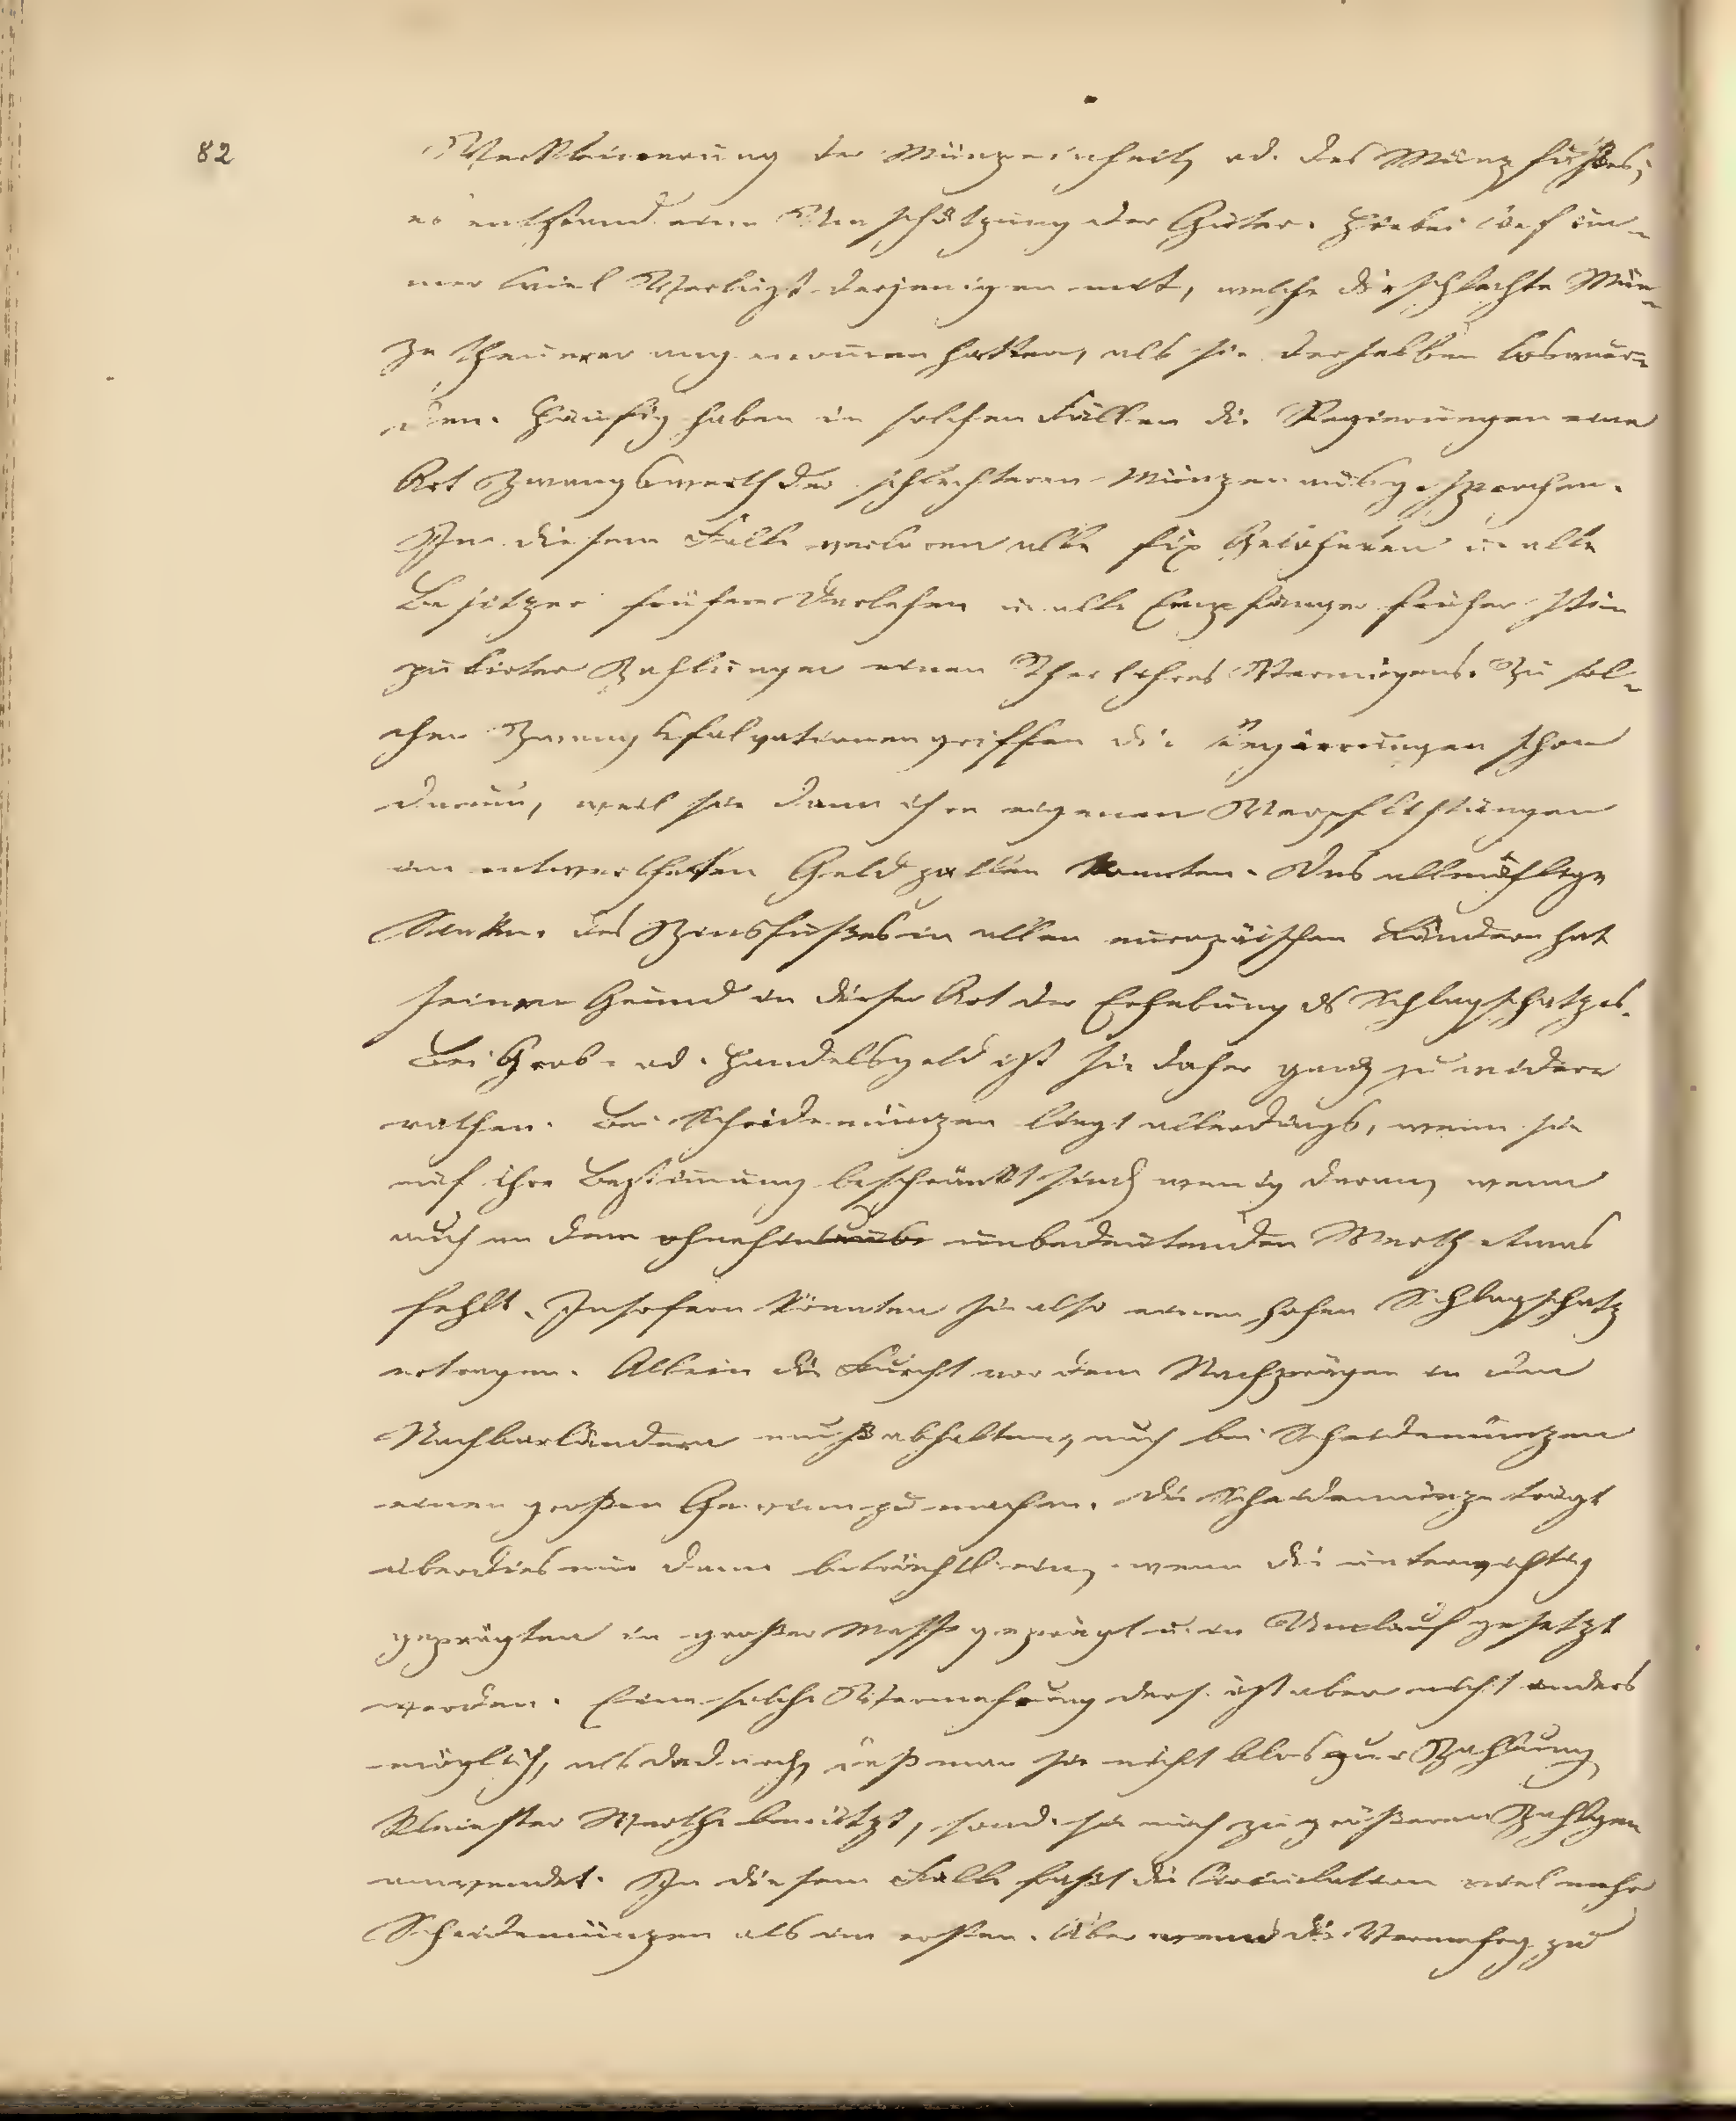 82
Verkleinerung der Münzeinheit, od. des Münzfußes;
es entstand eine Umschätzung der Güter. Hiebei lief im-
mer viel Verlust derjenigen mit, welche die schlechte Mün-
ze theuerer angenommen hatten, als sie derselben loswur-
den. Häufig haben in solchen Fällen die Regierungen eine
Art Zwangswerth der schlechteren Münzen ausgesprochen.
In diesem Falle verloren alle fix Besoldeten u. alle
Besitzer früherer Darlehen u. alle Empfänger früher stip
pulirter Zahlungen einen Theil ihres Vermögens. Zu sol-
chen Zwangs griffen die Regierungen schon
darum, weil sie dann ihre eigenen Verpflichtungen
im entwertheten Geld zallen konnten. Das allmählige
Sinken des Zinsfußes in allen europäischen Ländern hat
seinen Grund in dieser Art der Erhebung ds Schlagschatzes.
Bei Grob- od. Handelsgeld ist sie daher ganz zu wider
rathen. Bei Scheidemünzen liegt allerdings, wenn sie
auf ihre Bestimmung beschränkt sind, wenig daran, wenn
auch an dem ohnehin unbedeutenden Werth etwas
fehlt. Insofern könnten sie also einen hohen Schlagschatz
ertragen. Allein die Furcht vor dem Nachprägen in den
Nachbarländern muß abhalten, auch bei Scheidemünzen
einen großen Gewinn zu machen. Die Scheidemünze trägt
überdies nur dann beträchtl. ein, wenn die unterwichtig
geprägten in großer Masse geprägt u. in Umlauf gesetzt
werden. Eine solche Vermehrung ders. ist aber nicht anders
möglich, als dadurch, daß man sie nicht blos zur Zahlung
kleinster Werthe benützt, sond. sie auch zu größeren Zahlgen
anwendet. In diesem Falle faßt die Circulation viel mehr
Scheidemünzen als im ersten. Aber wenn die Vermehrg zu